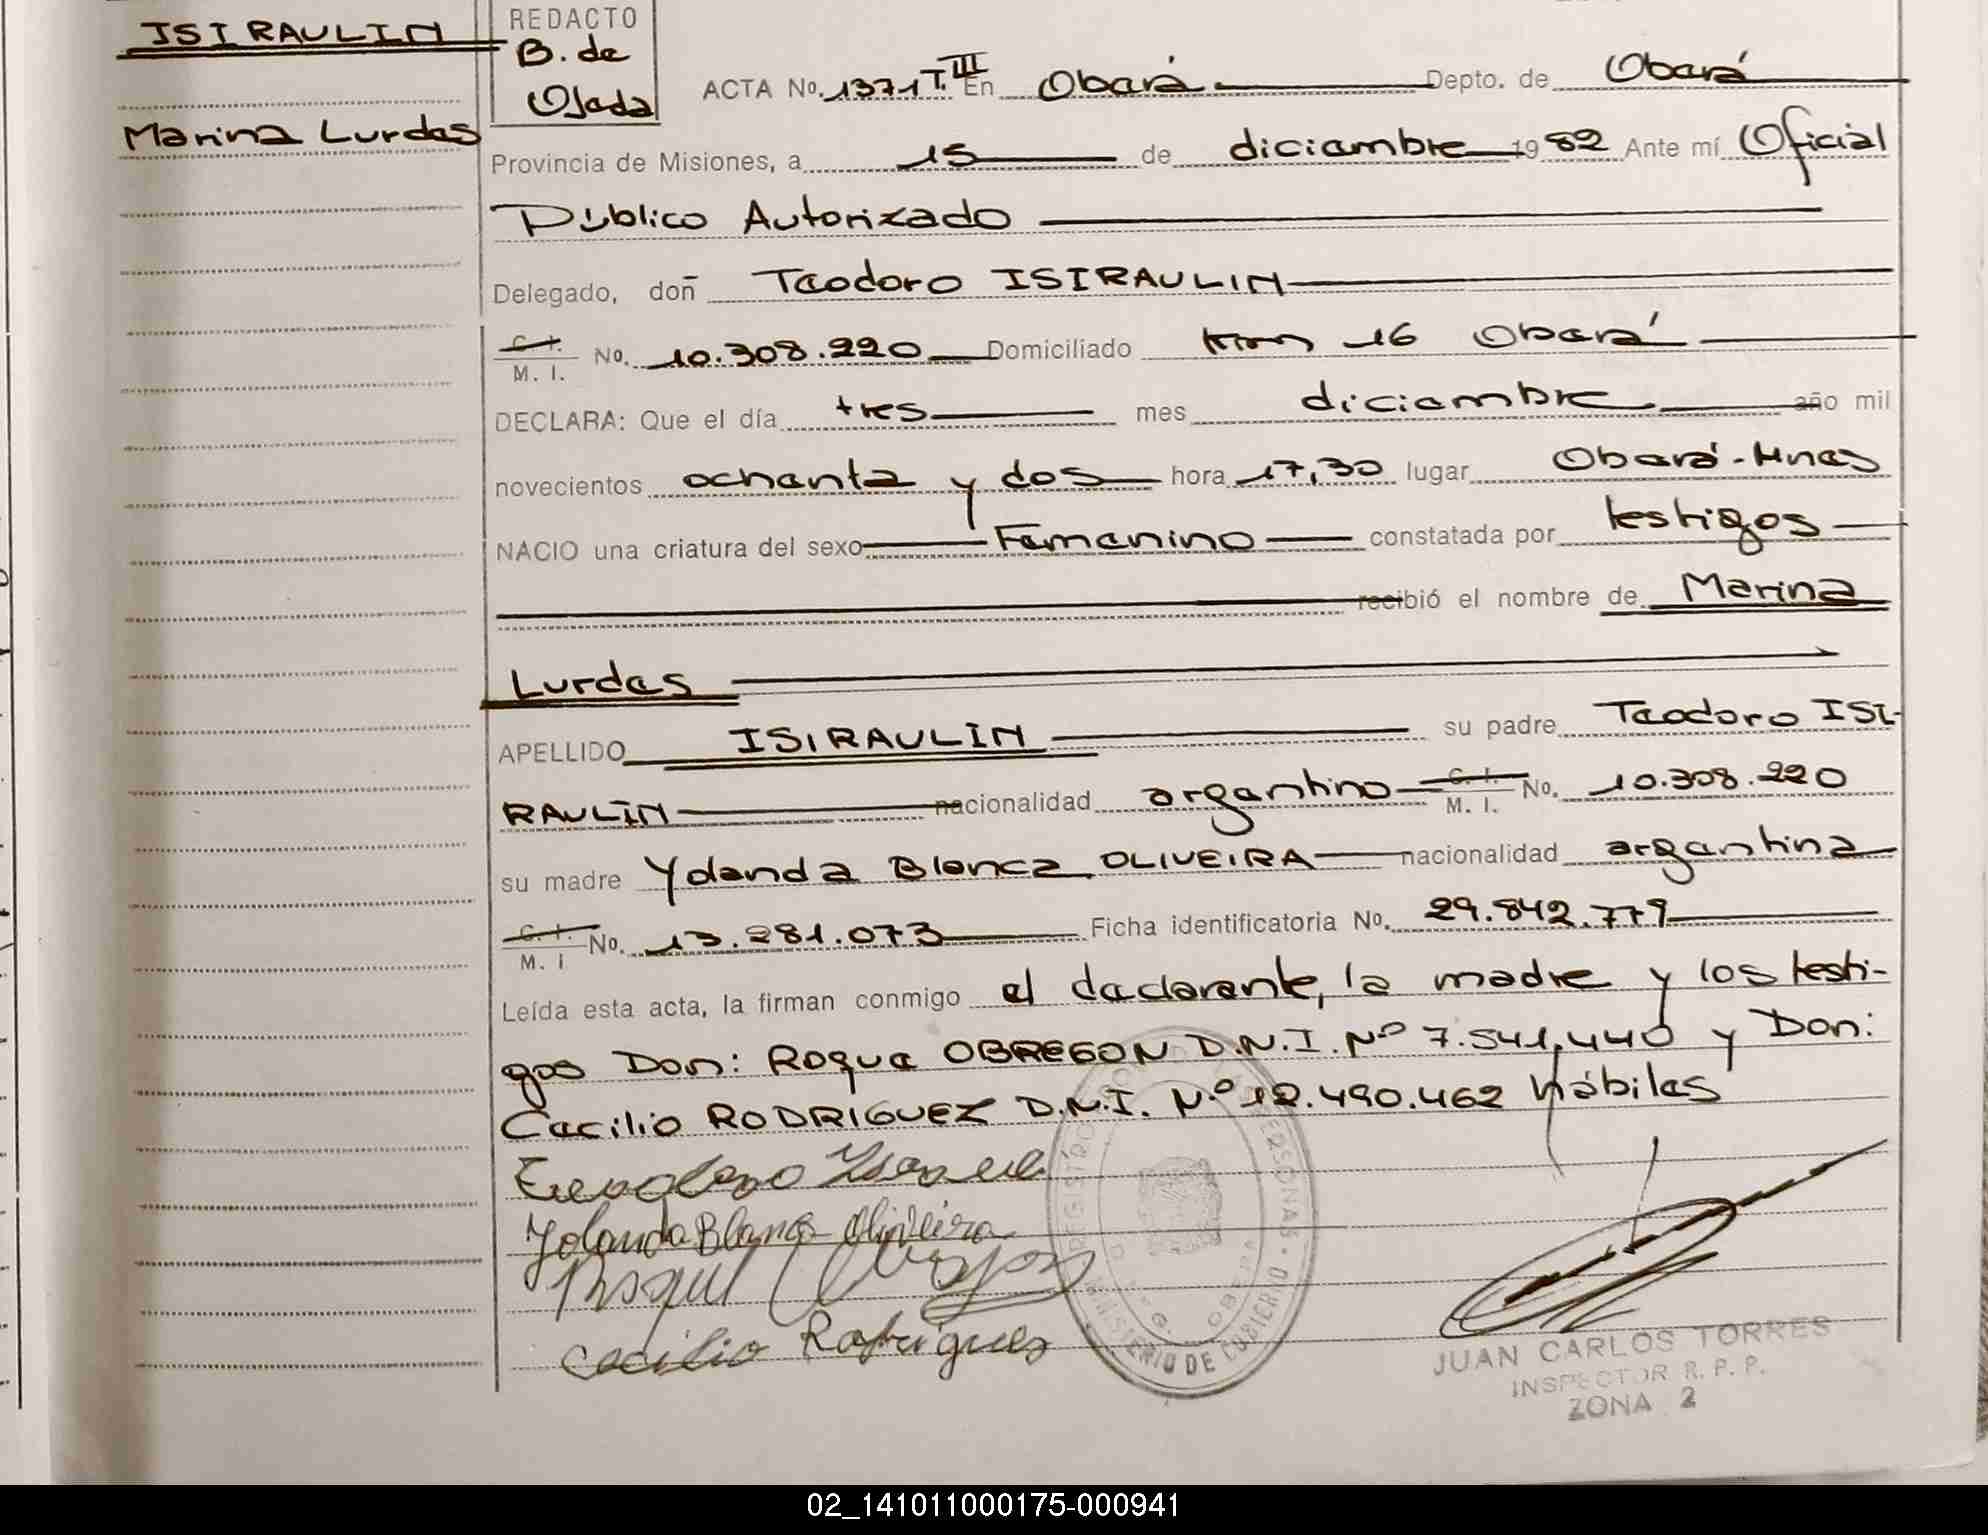 ISIRAULIN
Marina Lurdes
REDACTO
B. de
Ojeda
ACTA No. 1371 T. III En Oberá Depto. de Oberá
Provincia de Misiones, a 15 de diciembre 1982 Ante mí Oficial
Público Autorizado
Delegado, don Teodoro ISIRAULIN
C. I.
M. I. No. 10.308.220 Domiciliado Km 16 Oberá
DECLARA: Que el día tres mes diciembre año mil
novecientos ochenta y dos hora 17,30 lugar Oberá-Mnes
NACIO una criatura del sexo Femenino constatada por testigos
recibió el nombre de Marina
Lurdes
APELLIDO ISIRAULIN su padre Teodoro ISI-
RAULIN nacionalidad argentino C. I. M. I. No. 10.308.220
su madre Yolanda Blanca OLIVEIRA nacionalidad argentina
C. I. M. I No. 13.281.073 Ficha identificatoria No. 29.842.779
Leída esta acta, la firman conmigo el declarante, la madre y los testi-
gos Don: Roque OBREGON D.N.I. Nº 7.541.440 y Don:
Cecilio RODRIGUEZ D.N.I. Nº 12.490.462 hábiles
Yolanda Blanca Oliveira
Roque
Cecilio Rodrigues
MINISTERIO DE GOBIERNO
OBERA
JUAN CARLOS TORRES
INSPECTOR R. P. P.
ZONA 2
02_141011000175-000941